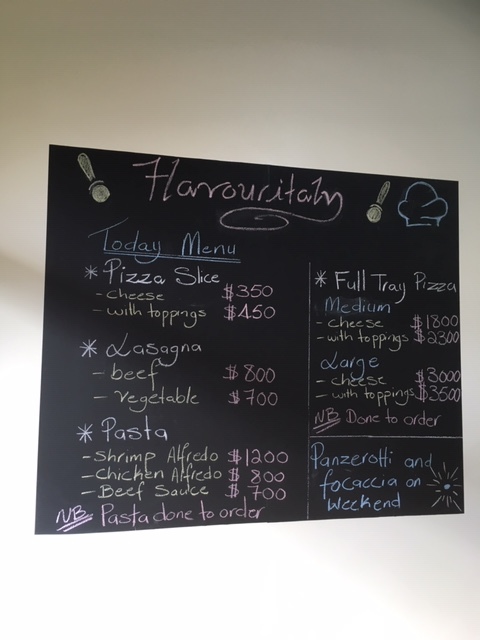 Flavouritaly
Today Menu
* Pizza Slice
- cheese $350
- with toppings $450
* Lasagna
- beef $800
- vegetable $700
* Pasta
- Shrimp Alfredo $1200
- Chicken Alfredo $800
- Beef Sauce $700
NB Pasta done to order
* Full Tray Pizza
Medium
- cheese $1800
- with toppings $2300
Large
- cheese $3000
- with toppings $3500
NB Done to order
Panzerotti and
focaccia on
weekend